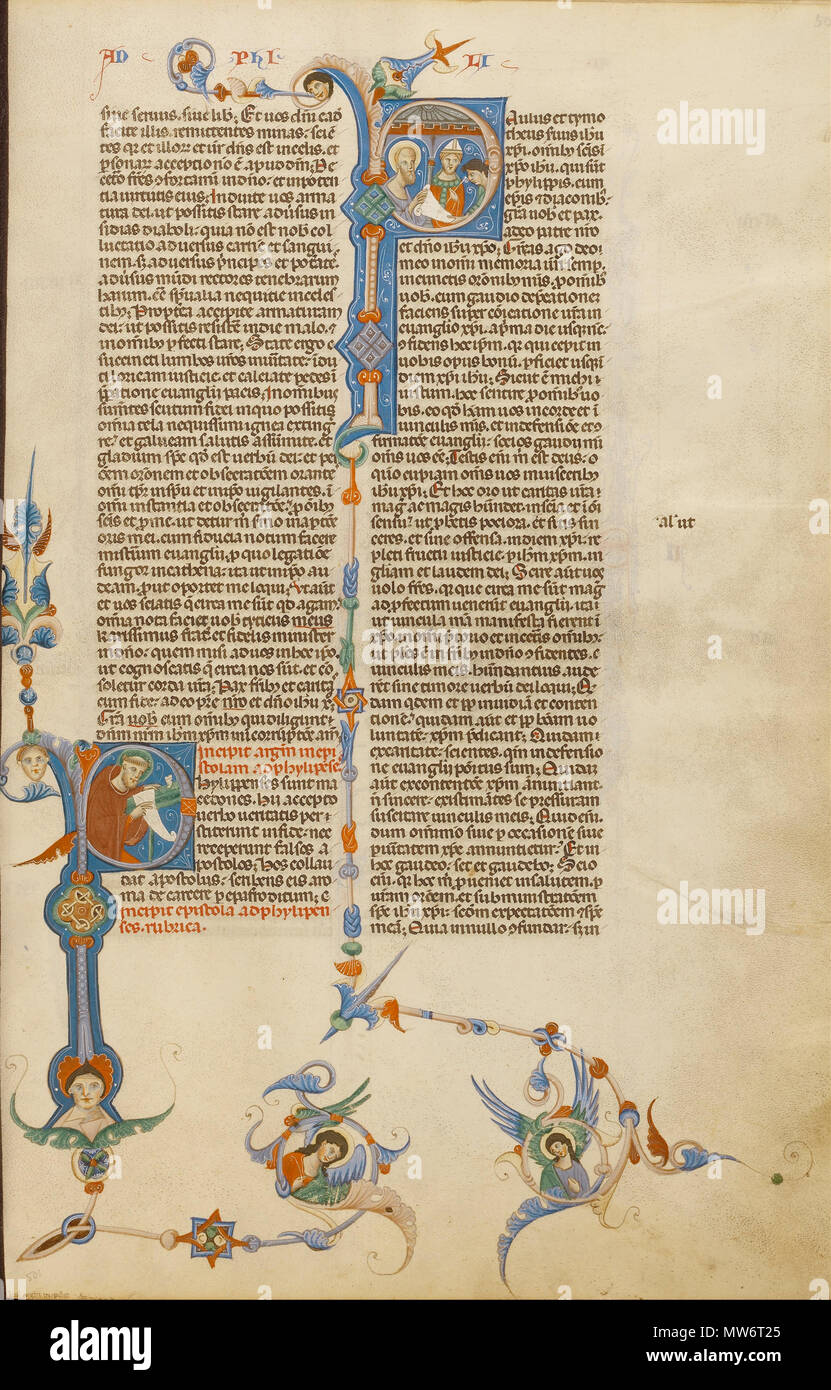 AD PhI LI
siue seruus, siue lib; Et uos dñi eadē
facite illis, remittentes minas; sciē
tes qr et illorȝ et ur̄ dn̄s est incelis, et
psonarȝ acceptio nō ē apud dm̄; De
cetō fr̄es ꝯfortamī indn̄o, et inpotē
tia uirtutis eius; Induite uos arma
turā dei, ut possitis stare aduersus in
sidias diaboli; quia nō est nob col
luctatio aduersus carnē et sangui
nem, sȝ aduersus pncipes et potātē,
aduersus mūdi rectores tenebrarum
harum, cōt spūalia nequitie inceles
tibȝ; Propterea accipite armaturam
dei, ut possitis resistē indie malo, et
inomibȝ pfecti stare; State ergo s
succincti lumbos uros inuitate, idu
ti loricam iusticie, et calciate pedes ī
pparatione euangl̄ii pacis; Inomibus
sumētes scutum fidei inquo possitis
omia tela nequissimi ignea exting
re, et galream salutis assumite, et
gladium sps̄ qd est uerbū dei, et per
oēm oronem et obsecratōem orante
omi tpr̄ inspū et inipo uigilantes, ī
omi instantia et obsecratōe; p oibȝ
scis et p me, ut detur m̄ smo inaptōe
oris mei, cum fiducia notum facere
misterium euangl̄ii, p quo legatiōe
fungor incathena, ita ut inipo au
deam, p ut oportet me loqui; Vt aūt
et uos sciatis que circa me sūt qd agam,
omia nota faciet uob tyticus meus
karissimus frat̄ et fidelis minister
indn̄o; quem misi ad uos inhoc ipo,
ut cognoscatis que circa nos sūt, et cō
soletur corda ur̄a; Pax frībȝ et caritas
cum fide, a deo pre nr̄o et dn̄o ihū x̄;
Grā uob cum omibȝ qui diligunt
dn̄m nr̄m ihm xpm̄ in corruptōe am̄;
Incipit argm̄ inepi
stolam ad phylipēse
Phylipenses sunt ma
cedones, hii accepto
uerbo ueritatis per
stiterunt infide, nec
receperunt falsos a
postolos; hos collau
dat apostolus, scribens eis a ro
ma de carcere p epafroditum; e
Incipit epistola ad phylipen
ses. rubrica.
Paulus et tymo
theus serui ihū
xpi, omibȝ scis ī
xpo ihū, qui sūt
phylippis, cum
epis et diaconibȝ
gra uob et pax,
a deo patre nr̄o
et dn̄o ihū xpo; Grās ago deo
meo inomi memoria ur̄i semp,
incunctis oronibȝ mīs, p omibȝ
uob, cum gaudio depcatione
faciens super cōicatione ur̄a in
euanglio xpi, a pma die usqȝ nūc
ꝯfidens hoc ipm, qr qui cepit in
uobis opus bonū, pficiet usqȝ ī
diem xpi ihū; Sicut ē michi i
iustum, hoc sentire p omibȝ uo
bis, eo qd ham uos incorde et ī
uinculis mīs, et indefensiōe et ꝯ
firmatōe euangl̄ii; socios gaudii mī
oms uos eē; Testis eīm m̄ est deus, q
quō cupiam oms uos inuiscerībȝ
ihū xpi; Et hoc oro ut caritas ur̄a
mag ac magis hūndet insciā et ī oī
sensu, ut pbetis pociora, et sitis sin
ceres, et sine offensa, indiem xpi, re
pleti fructu iusticie, p ihm xpm, in
gl̄iam et laudem dei; Scire aūt uos
uolo frēs, qr que circa me sūt mag
ad pfectum uenerūt euangl̄ii, ita i
ut uincula mā manifesta fierent ī
xpo, inomi ptorio et incetis omibȝ,
ut ples ē fribȝ indn̄o ꝯfidentes, e
uinculis meis, hūndantius aude
rēt sine timore uerbū dei loqui; Q
dam qdem et pp inuidiā et conten
tione, quidam aūt et pp bonam uo
luntate, xpm pdicant; Quidam i
ex caritate, scientes, qm indefensio
ne euangl̄ii positus sum; Quidaȝ
aūt ex contentōe xpm annuntiant,
n̄ sincere, existimātes se pressuram
suscitare uinculis meis; Quid em,
dum omi mo siue p occasionē siue
p uitatem xps annuncietur; Et in
hoc gaudeo, set et gaudebo; Scio
em, qr hoc m̄ pueniet insalutem, p
uram orōem, et subministratōem
sps ihū xpi, scdm expectatōem et spē
meā; Quia innullo ꝯfundar, sȝ in
al' ut
alamy
Image ID: MW6T25
www.alamy.com